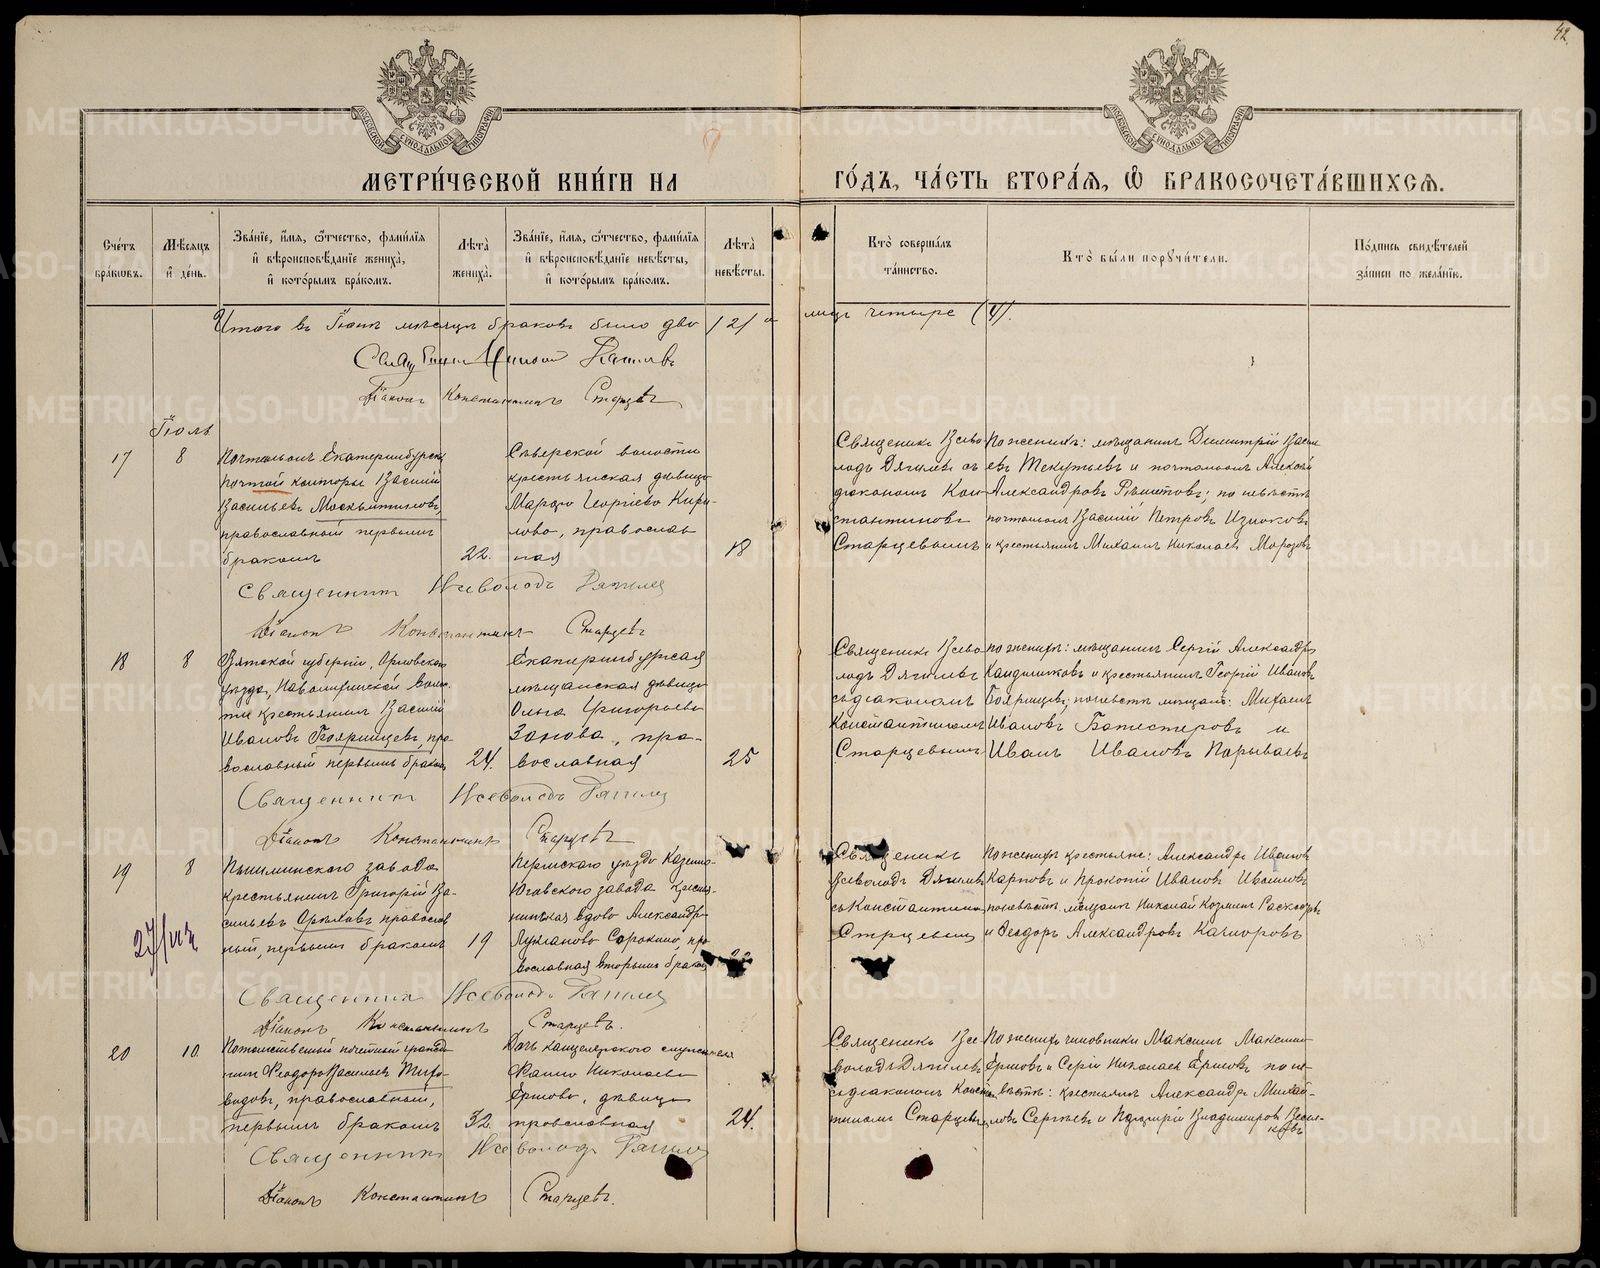 42
МЕТРИ́ЧЕСКОЙ КНИ́ГИ НА ГО́ДЪ, ЧА́СТЬ ВТОРА́Я, Ѽ БРАКОСОЧЕТА́ВШИХСѦ.
Сче́тъ бра́кѡвъ.
Мѣ́сяцъ и҆ де́нь.
Зва́нїе, и҆́мя, ѻ҆́тчество, фами́лїя и҆ вѣроисповѣ́данїе жениха̀, и҆ кото́рымъ бра́комъ.
Лѣ́та жениха̀.
Зва́нїе, и҆́мя, ѻ҆́тчество, фами́лїя и҆ вѣроисповѣ́данїе невѣ́сты, и҆ кото́рымъ бра́комъ.
Лѣ́та невѣ́сты.
Кто̀ соверша́лъ та́инство.
Кто̀ бы́ли поручи́тели.
По́дпись свидѣ́телей за́писи по жела́нїю.
Итого въ Іюнѣ мѣсяцѣ браковъ было два /2/ а лицъ четыре (4).
Діаконъ Константинъ Старцевъ
Іюль
17
8
Почтальонъ Екатеринбургск.
почтой конторы Василій
Васильевъ
православный первымъ
бракомъ
22.
Сѣверской волости
крестьянская дѣвица
Марѳа Георгіева Кири-
лова, православ
ная
18
Священикъ Всево-
лодъ Дягилевъ съ
діаконом Кон-
стантиновъ
Старцевымъ
По женихѣ: мѣщанинъ Димитрій Васил
евъ Текутьевъ и почтальонъ Алексѣй
Александровъ Рѣшетовъ; по невѣстѣ
почтальон Василій Петровъ Изноковъ
и крестьянинъ Михаилъ Николаев Морозовъ
Священникъ Всеволодъ Дягилев
Діаконъ Константинъ Старцевъ
18
8
Вятской губерніи, Орловскаго
уѣзда,
крестьянинъ Василій
Ивановъ Бояринцевъ, пра-
вославный первымъ браком
24.
Екатеринбургсая
мѣщанская дѣвица
Ольга Григорьева
Зонова, пра-
вославная
25
Священикъ Всево
лодъ Дягилевъ
съ діаконом
Константиномъ
Старцевымъ
по женихѣ: мѣщанинъ Сергій Александр.
и крестьянинъ Георгій Иванов
Бояринцевъ; по невѣстѣ мѣщане: Михаилъ
Ивановъ Батестеровъ и
Иванъ Ивановъ Порываевъ
Священникъ Всеволодъ Дягилев
Діаконъ Константинъ Старцевъ
19
8
Пышминского завода
крестьянинъ Григорій Ва-
сильевъ Орѣховъ православ
ный, первымъ бракомъ
19
Пермскаго уѣзда
Юговского завода крестья-
нинская вдова Александра
Лукianова Сорокина, пра
вославная вторымъ бракомъ
22
Священикъ
Всеволодъ Дягилевъ
съ Константино
Стрцевым
По женихѣ крестьяне: Александръ Ивановъ
Карповъ и Прокопій Ивановъ Ивановъ
по невѣстѣ, мѣщане Николай Козмин
и Ѳеодоръ Александровъ Качноровъ
Священникъ Всеволодъ Дягилев
Діаконъ Константинъ Старцевъ.
20
10
Потомственный почетный гражда-
нинъ Ѳеодоръ Васильев Тихо-
видовъ, православный,
первымъ бракомъ
32.
Дочь канцелярского служителя
Фаина Николаева
Ершова, дѣвица
православная
24.
Священикъ Все
володъ Дягилевъ
съ діаконом Конста
тином Старцевым
По женихѣ чиновники Максимъ Максим
Ершовъ и Сергій Николаев Ершовъ по не-
вѣстѣ: крестьянинъ Александръ Михай-
ловъ Сергѣевъ и Порфирій Владимировъ Весне-
ковъ
Священникъ Всеволодъ Дягилев
Діаконъ Константинъ Старцевъ.
METRIKI.GASO-URAL.RU